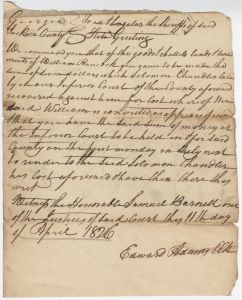 Georgia To all & Singular the Sheriffs of said
County State Greeting
We command you that of the goods Chattels lands & tene
ments of William you cause to be made the
sum of Seven dollars which Solomon Chandler late
ly in our Inferior Court of the County aforesaid
recovered against him for Cost where of the
said William is convicted as appears of
that you have the said Sum of money at
the Inferior Court to be held in & for said
County on the first monday in July next
to render to the said Solomon Chandler
his Cost aforesaid & have then there this
writ
Witness the Honorable Samuel Barnett one
of the Justices of said Court this 11th day
of April 1826
Edward Adams Clk